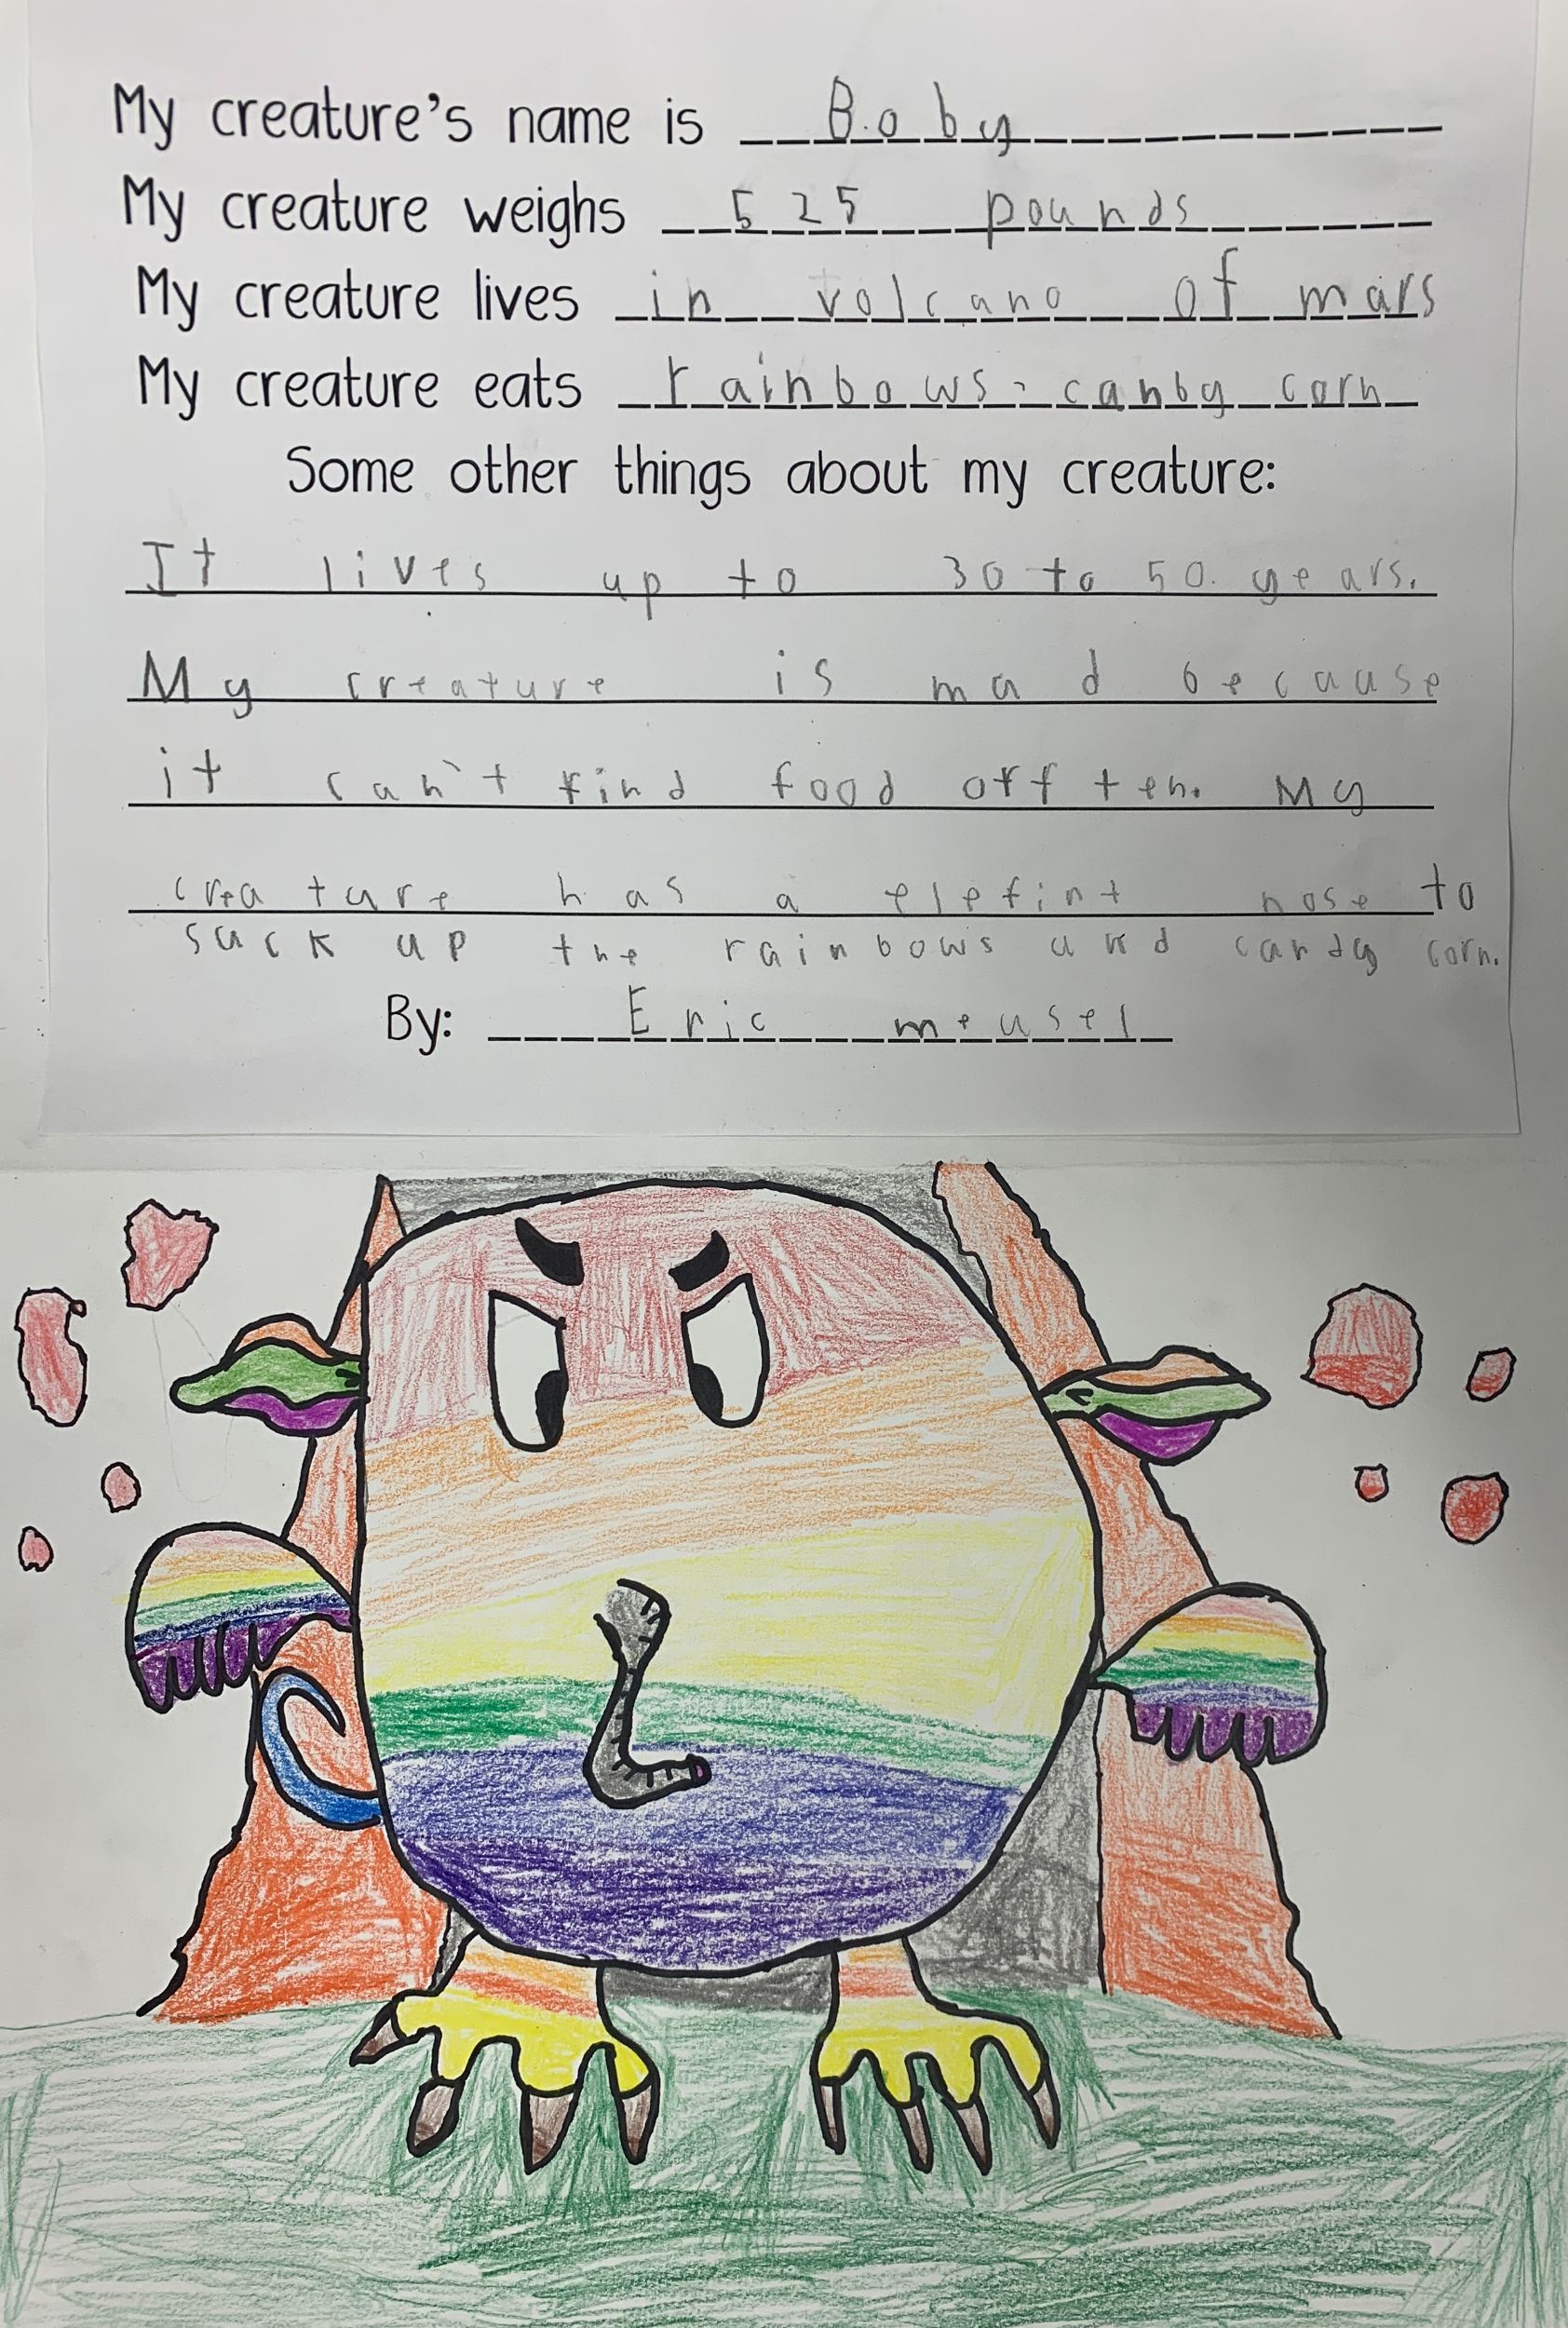 My creature's name is Boby
My creature weighs 525 pounds
My creature lives in volcano of mars
My creature eats rainbows, canby corn
Some other things about my creature:
It lives up to 30 to 50 years.
My creature is mad because
it can't find food off ten. My
creature has a elefint nose to
suck up the rainbows and candy corn.
By: Eric meusel